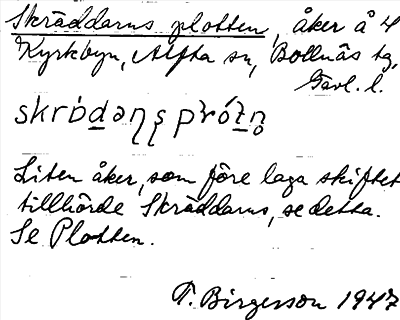 Skräddarns plotten, åker å 4
Kyrkbyn, Alfta sn, Bollnäs tg,
Gävl. l.
Liten åker, som före laga skiftet
tillhörde Skräddarns, se detta.
Se Plotten.
T. Birgersson 1947